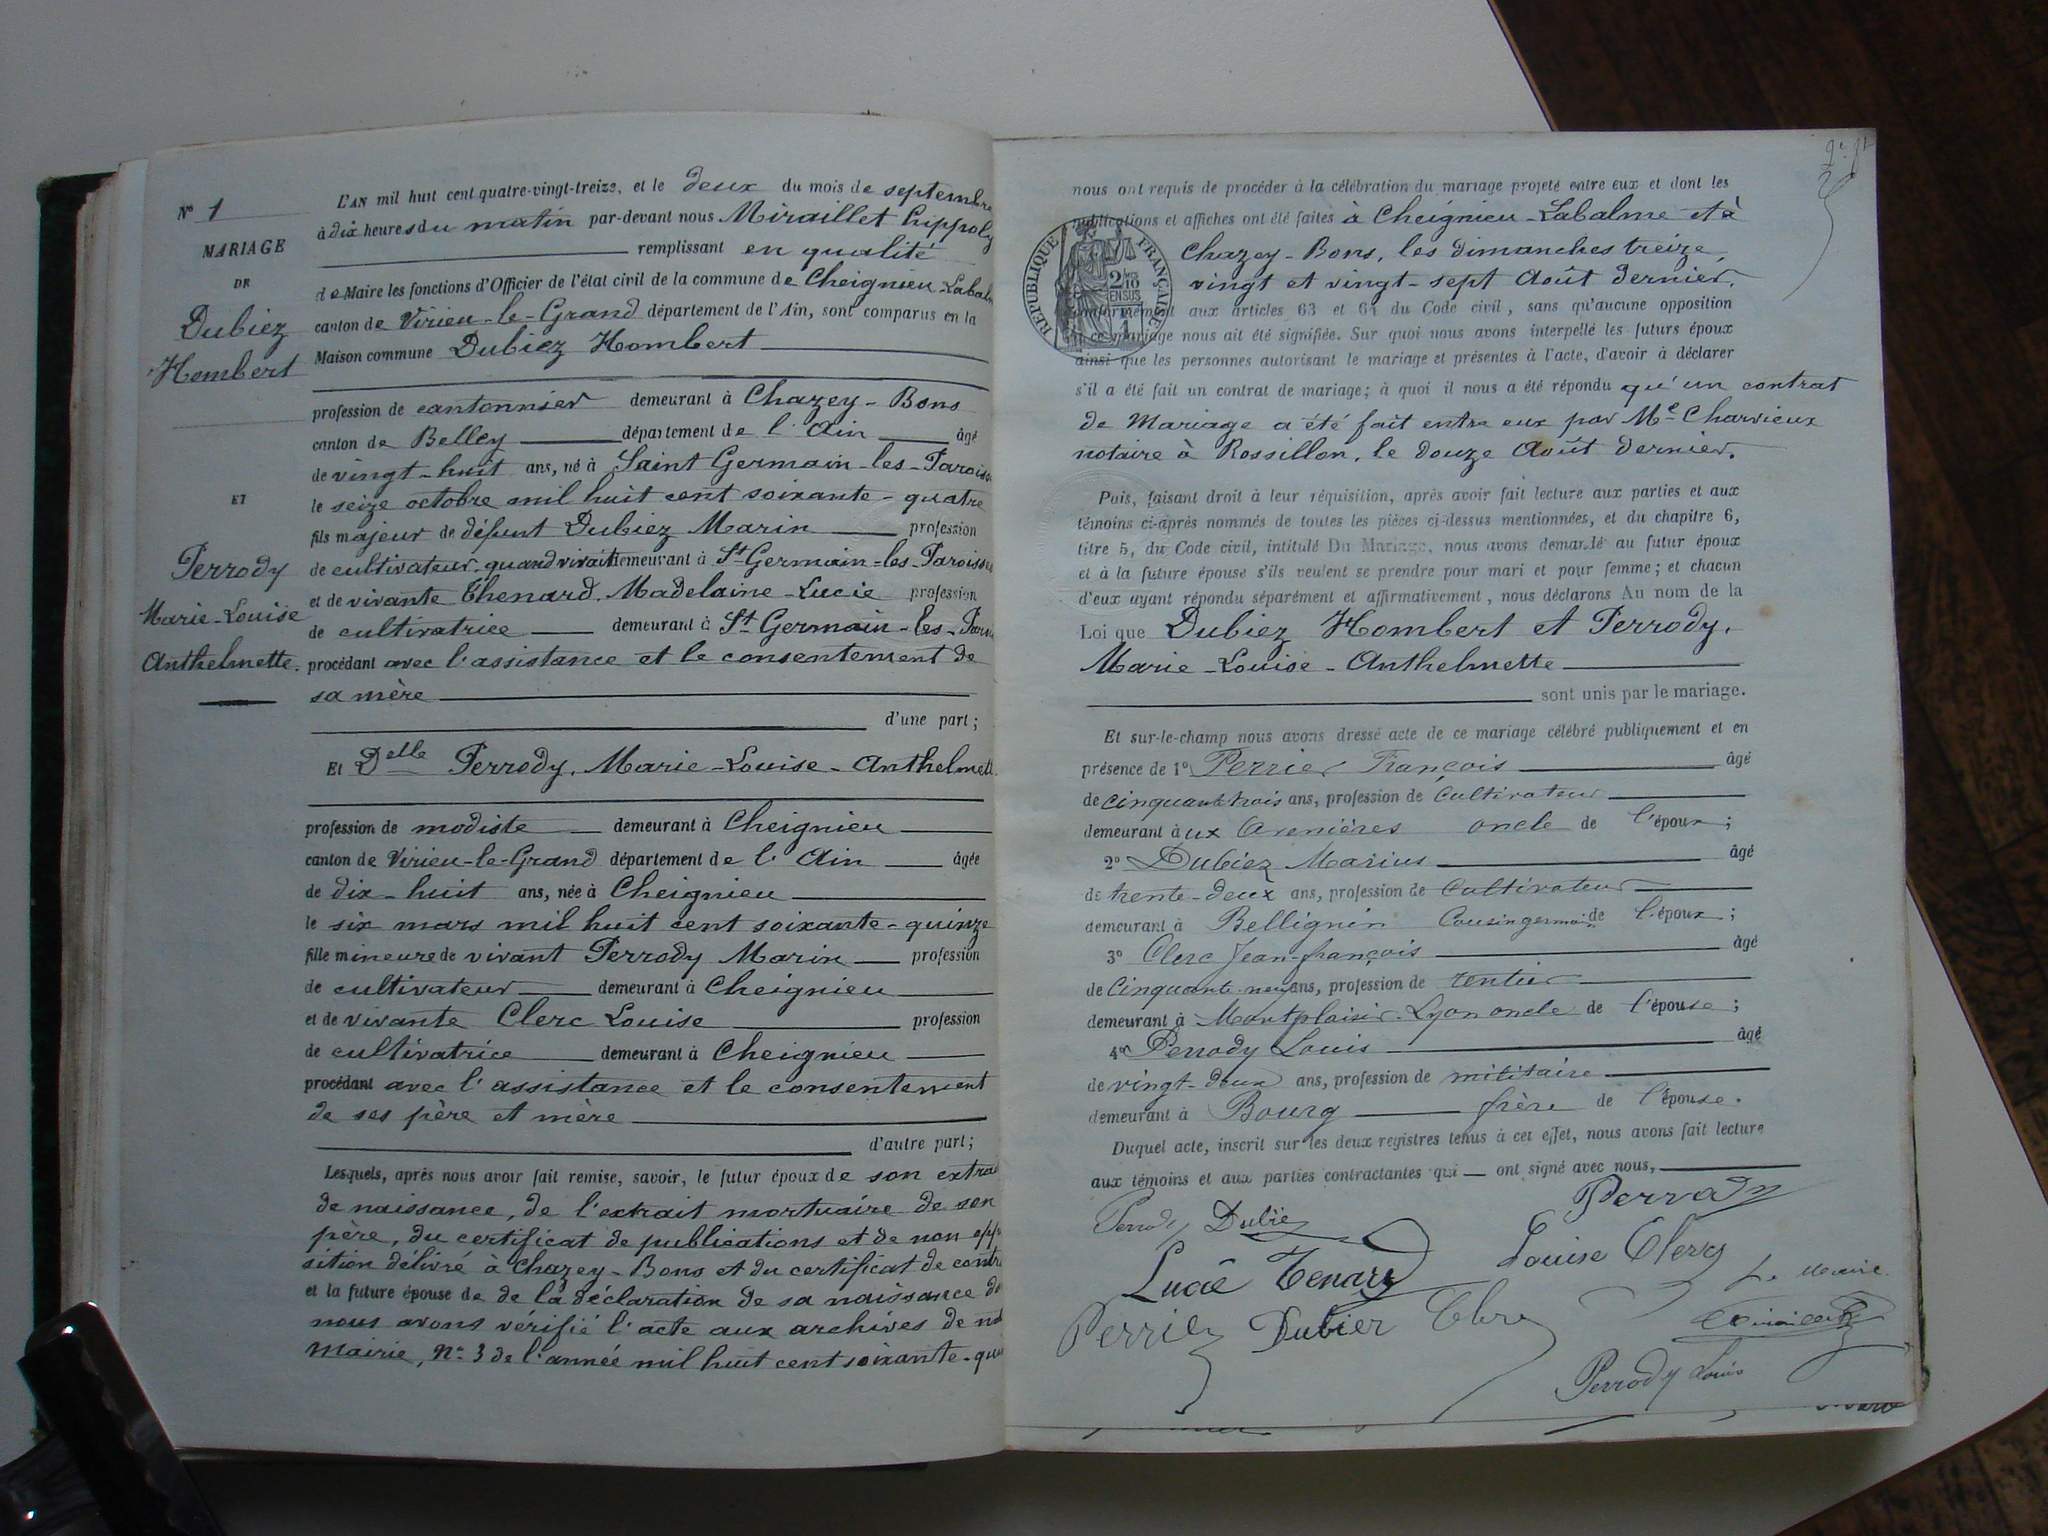 N° 1
MARIAGE
DE
Dubiez
Hombert
ET
Perrody
Marie-Louise
Anthelmette.
L'AN mil huit cent quatre-vingt-treize, et le deux du mois de septembre
à dix heures du matin par-devant nous Miraillet hippoly
remplissant en qualité
de Maire les fonctions d'Officier de l'état civil de la commune de Cheignieu-Labal
canton de Virieu-le-Grand département de l'Ain, sont comparus en la
Maison commune Dubiez Hombert
profession de cantonnier demeurant à Chazey-Bons
canton de Belley département de l'Ain âgé
de vingt-huit ans, né à Saint Germain-les-Parois
le seize octobre mil huit cent soixante-quatre
fils majeur de défunt Dubiez Marin profession
de cultivateur quand vivait demeurant à St Germain-les-Paroiss
et de vivante Thenard Madelaine-Lucie profession
de cultivatrice demeurant à St Germain-les-Paroi
procédant avec l'assistance et le consentement de
sa mère
d'une part;
Et Delle Perrody, Marie-Louise-Anthelmett
profession de modiste demeurant à Cheignieu
canton de Virieu-le-Grand département de l'Ain âgée
de dix-huit ans, née à Cheignieu
le six mars mil huit cent soixante-quinze
fille mineure de vivant Perrody Marin profession
de cultivateur demeurant à Cheignieu
et de vivante Clerc Louise profession
de cultivatrice demeurant à Cheignieu
procédant avec l'assistance et le consentement
de ses père et mère
d'autre part;
Lesquels, après nous avoir fait remise, savoir, le futur époux de son extrai
de naissance, de l'extrait mortuaire de son
père, du certificat de publications et de non oppo
sition délivré à Chazey-Bons et du certificat de contra
et la future épouse de de la déclaration de sa naissance do
nous avons vérifié l'acte aux archives de no
mairie, N° 3 de l'année mil huit cent soixante-qui
nous ont requis de procéder à la célébration du mariage projeté entre eux et dont les
publications et affiches ont été faites à Cheignieu-Labalme et à
Chazey-Bons, les dimanches treize,
vingt et vingt-sept Août dernier,
RÉPUBLIQUE FRANÇAISE
2/10 EN SUS
conformément aux articles 63 et 64 du Code civil, sans qu'aucune opposition
à ce mariage nous ait été signifiée. Sur quoi nous avons interpellé les futurs époux
ainsi que les personnes autorisant le mariage et présentes à l'acte, d'avoir à déclarer
s'il a été fait un contrat de mariage; à quoi il nous a été répondu qu'un contrat
de Mariage a été fait entre eux par Me Charvieux
notaire à Rossillon, le douze Août dernier.
Puis, faisant droit à leur réquisition, après avoir fait lecture aux parties et aux
témoins ci-après nommés de toutes les pièces ci-dessus mentionnées, et du chapitre 6,
titre 5, du Code civil, intitulé Du Mariage, nous avons demandé au futur époux
et à la future épouse s'ils veulent se prendre pour mari et pour femme; et chacun
d'eux ayant répondu séparément et affirmativement, nous déclarons Au nom de la
Loi que Dubiez Hombert et Perrody,
Marie-Louise-Anthelmette
sont unis par le mariage.
Et sur-le-champ nous avons dressé acte de ce mariage célébré publiquement et en
présence de 1° Perrier François âgé
de cinquante trois ans, profession de Cultivateur
demeurant à ux Arenières oncle de l'époux;
2° Dubiez Marius âgé
de trente-deux ans, profession de Cultivateur
demeurant à Bellignin Cousin germain de l'époux;
3° Clerc Jean-françois âgé
de Cinquante-neuf ans, profession de rentier
demeurant à Montplaisir-Lyon oncle de l'épouse;
4° Perrody Louis âgé
de vingt-deux ans, profession de militaire
demeurant à Bourg frère de l'épouse.
Duquel acte, inscrit sur les deux registres tenus à cet effet, nous avons fait lecture
aux témoins et aux parties contractantes qui ont signé avec nous,
Perrody Dubiez
Perrody
Lucie Tenard
Louise Clerc
Le Maire
Perrier Dubiez Clerc
Perrody Louis